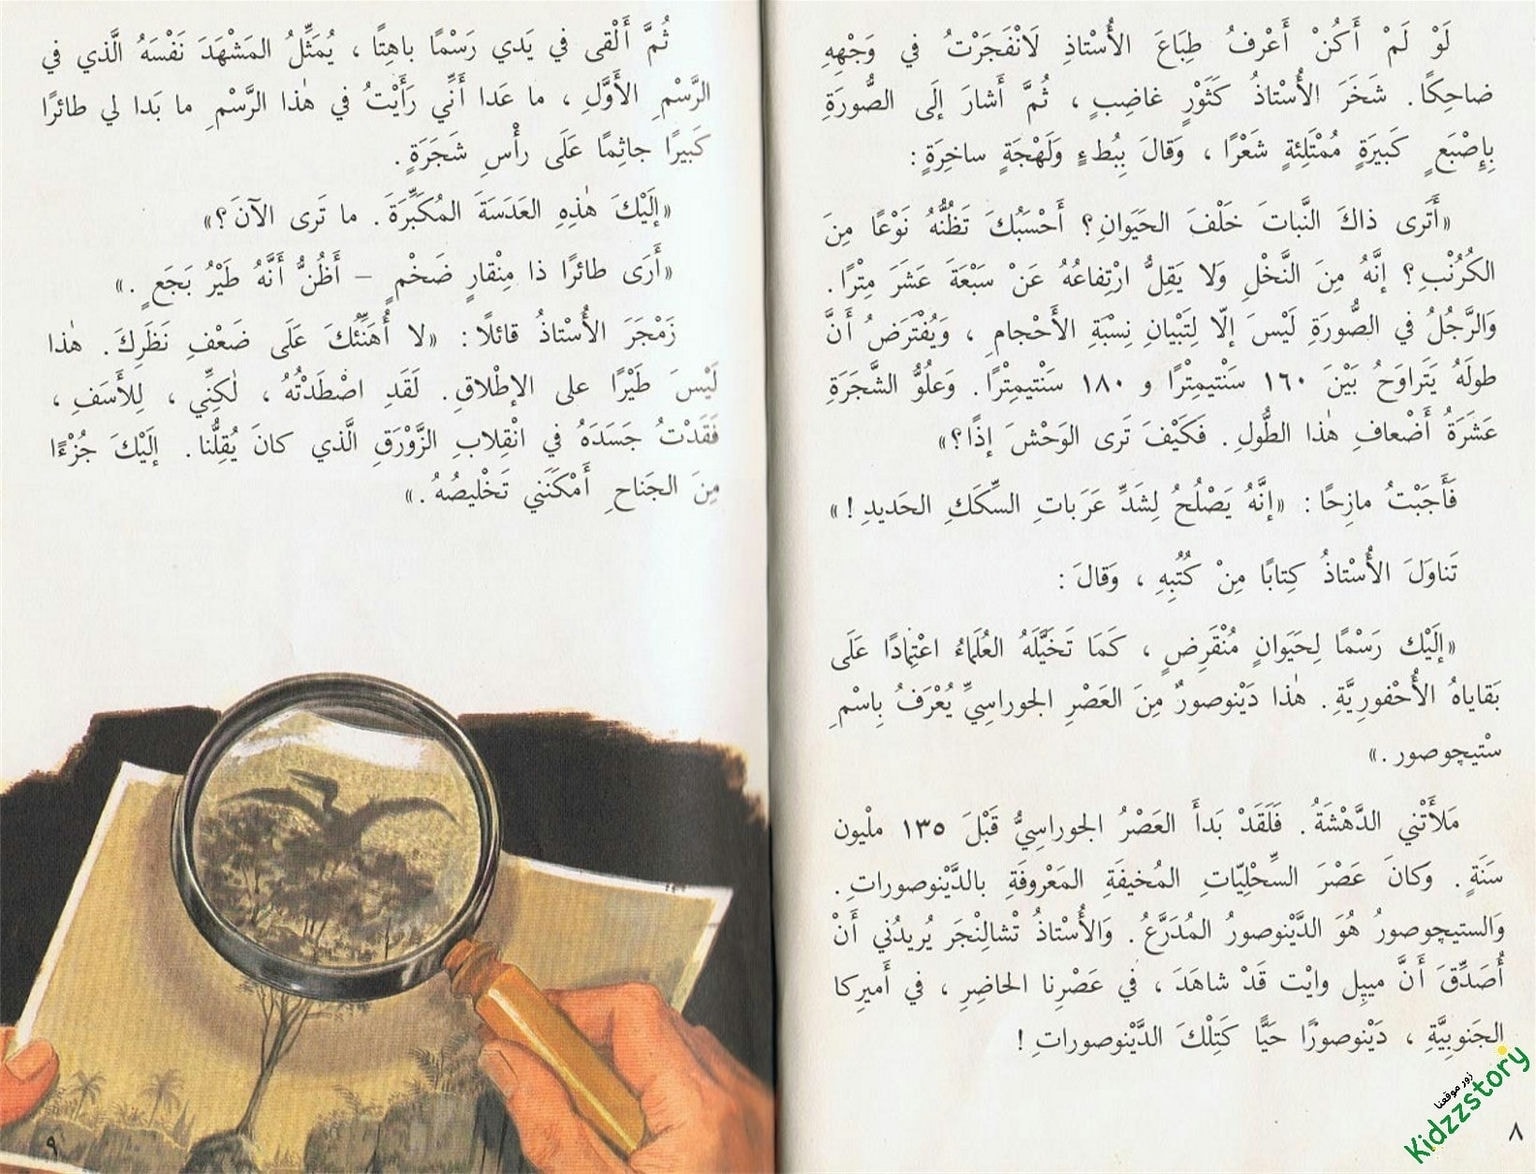 لَوْ لَمْ أَكُنْ أَعْرِفُ طِبَاعَ الأُسْتاذِ لَانْفَجَرْتُ في وَجْهِهِ
ضاحِكًا. شَخَرَ الأُسْتاذُ كَثَوْرٍ غاضِبٍ، ثُمَّ أَشارَ إلَى الصُّورَةِ
بِإِصْبَعٍ كَبيرَةٍ مُمْتَلِئةٍ شَعْرًا، وَقالَ بِبُطءٍ وَلَهْجَةٍ ساخِرَةٍ:
«أَتَرى ذاكَ النَّباتَ خَلْفَ الحَيَوانِ؟ أَحْسَبُكَ تَظُنُّهُ نَوْعًا مِنَ
الكُرُنْبِ؟ إنَّهُ مِنَ النَّخْلِ وَلا يَقِلُّ ارْتِفاعُهُ عَنْ سَبْعَةَ عَشَرَ مِتْرًا.
وَالرَّجُلُ في الصُّورَةِ لَيْسَ إلّا لِتَبْيانِ نِسْبَةِ الأَحْجامِ، وَيُفْتَرَضُ أَنَّ
طولَهُ يَتَراوَحُ بَيْنَ ١٦٠ سَنْتيمِتْرًا و ١٨٠ سَنْتيمِتْرًا. وَعُلُوُّ الشَّجَرَةِ
عَشَرَةُ أَضْعافِ هٰذا الطُّولِ. فَكَيْفَ تَرى الوَحْشَ إذًا؟»
فَأَجَبْتُ مازِحًا: «إنَّهُ يَصْلُحُ لِشَدِّ عَرَباتِ السِّكَكِ الحَديدِ!»
تَناوَلَ الأُسْتاذُ كِتابًا مِنْ كُتُبِهِ، وَقالَ:
«إلَيْكَ رَسْمًا لِحَيَوانٍ مُنْقَرِضٍ، كَمَا تَخَيَّلَهُ العُلَماءُ اعْتِمادًا عَلَى
بَقاياهُ الأُحْفورِيَّةِ. هٰذا دَيْنوصورٌ مِنَ العَصْرِ الجوراسِيِّ يُعْرَفُ بِاسْمِ
سْتيچوصور.»
مَلَأَتْني الدَّهْشَةُ. فَلَقَدْ بَدأَ العَصْرُ الجوراسِيُّ قَبْلَ ١٣٥ مليْون
سَنَةٍ. وَكانَ عَصْرَ السِّحْلِيّاتِ المُخيفَةِ المَعْروفَةِ بالدَّيْنوصوراتِ.
وَالستيچوصورُ هُوَ الدَّيْنوصورُ المُدَرَّعُ. وَالأُسْتاذُ تْشالِنْجَر يُريدُني أَنْ
أُصَدِّقَ أَنَّ مييِل وايْت قَدْ شاهَدَ، في عَصْرِنا الحاضِرِ، في أَميرِكا
الجَنوبِيَّةِ، دَيْنوصورًا حَيًّا كَتِلْكَ الدَّيْنوصوراتِ!
٨
زور موقعنا
Kidzzstory
ثُمَّ أَلْقى في يَدي رَسْمًا باهِتًا، يُمَثِّلُ المَشْهَدَ نَفْسَهُ الَّذي في
الرَّسْمِ الأَوَّلِ، ما عَدا أَنِّي رَأَيْتُ في هٰذا الرَّسْمِ ما بَدا لي طائرًا
كَبيرًا جاثِمًا عَلَى رأْسِ شَجَرَةٍ.
«إلَيْكَ هٰذِهِ العَدَسَةَ المُكَبِّرَةَ. ما تَرى الآنَ؟»
«أَرَى طائرًا ذا مِنْقارٍ ضَخْمٍ – أَظُنُّ أَنَّهُ طَيْرُ بَجَعٍ.»
زَمْجَرَ الأُسْتاذُ قائلًا: «لا أُهَنِّئُكَ عَلَى ضَعْفِ نَظَرِكَ. هٰذا
لَيْسَ طَيْرًا على الإطْلاقِ. لَقَدِ اصْطَدْتُهُ، لٰكِنِّي، لِلأَسَفِ،
فَقَدْتُ جَسَدَهُ في انْقِلابِ الزَّوْرَقِ الَّذي كانَ يُقِلُّنا. إلَيْكَ جُزْءًا
مِنَ الجَناحِ أَمْكَنَني تَخْليصُهُ.»
٩